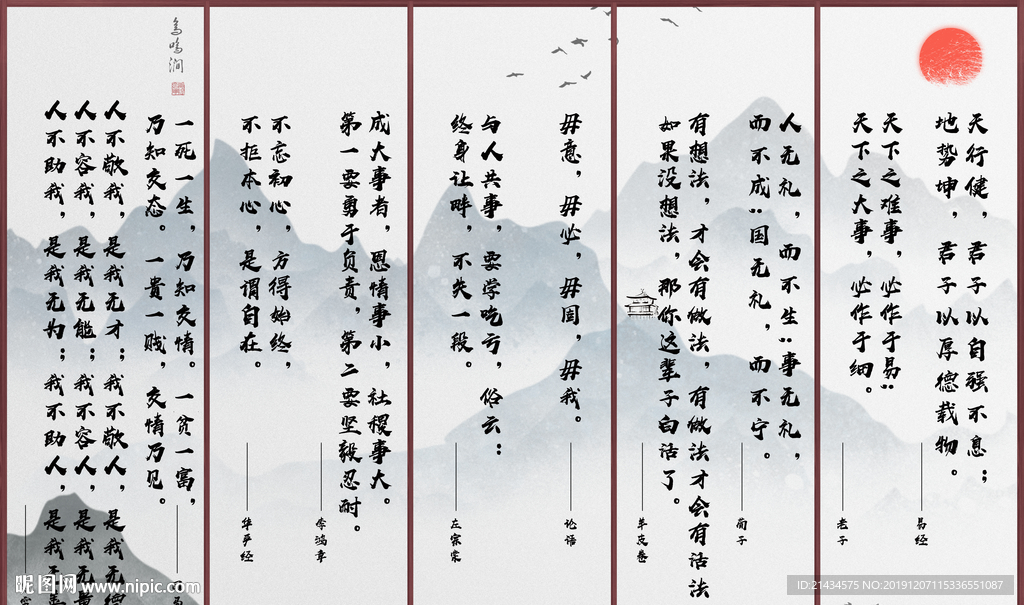 天行健，君子以自强不息；
地势坤，君子以厚德载物。
易经
天下之难事，必作于易；
天下之大事，必作于细。
老子
人无礼，而不生；事无礼，
而不成；国无礼，而不宁。
荀子
有想法，才会有做法，有做法才会有活法
如果没想法，那你这辈子白活了。
毋意，毋必，毋固，毋我。
论语
与人共事，要学吃亏，俗云：
终身让畔，不失一段。
左宗棠
成大事者，恩情事小，社稷事大。
第一要勇于负责，第二要坚毅忍耐。
李鸿章
不忘初心，方得始终，
不拒本心，是谓自在。
华严经
鸟鸣涧
一死一生，乃知交情。一贫一富，
乃知交态。一贵一贱，交情乃见。
人不敬我，是我无才；我不敬人，是我无德
人不容我，是我无能；我不容人，是我无量
人不助我，是我无为；我不助人，是我无善
昵图网 www.nipic.com
ID:21434575 NO:20191207115336551087